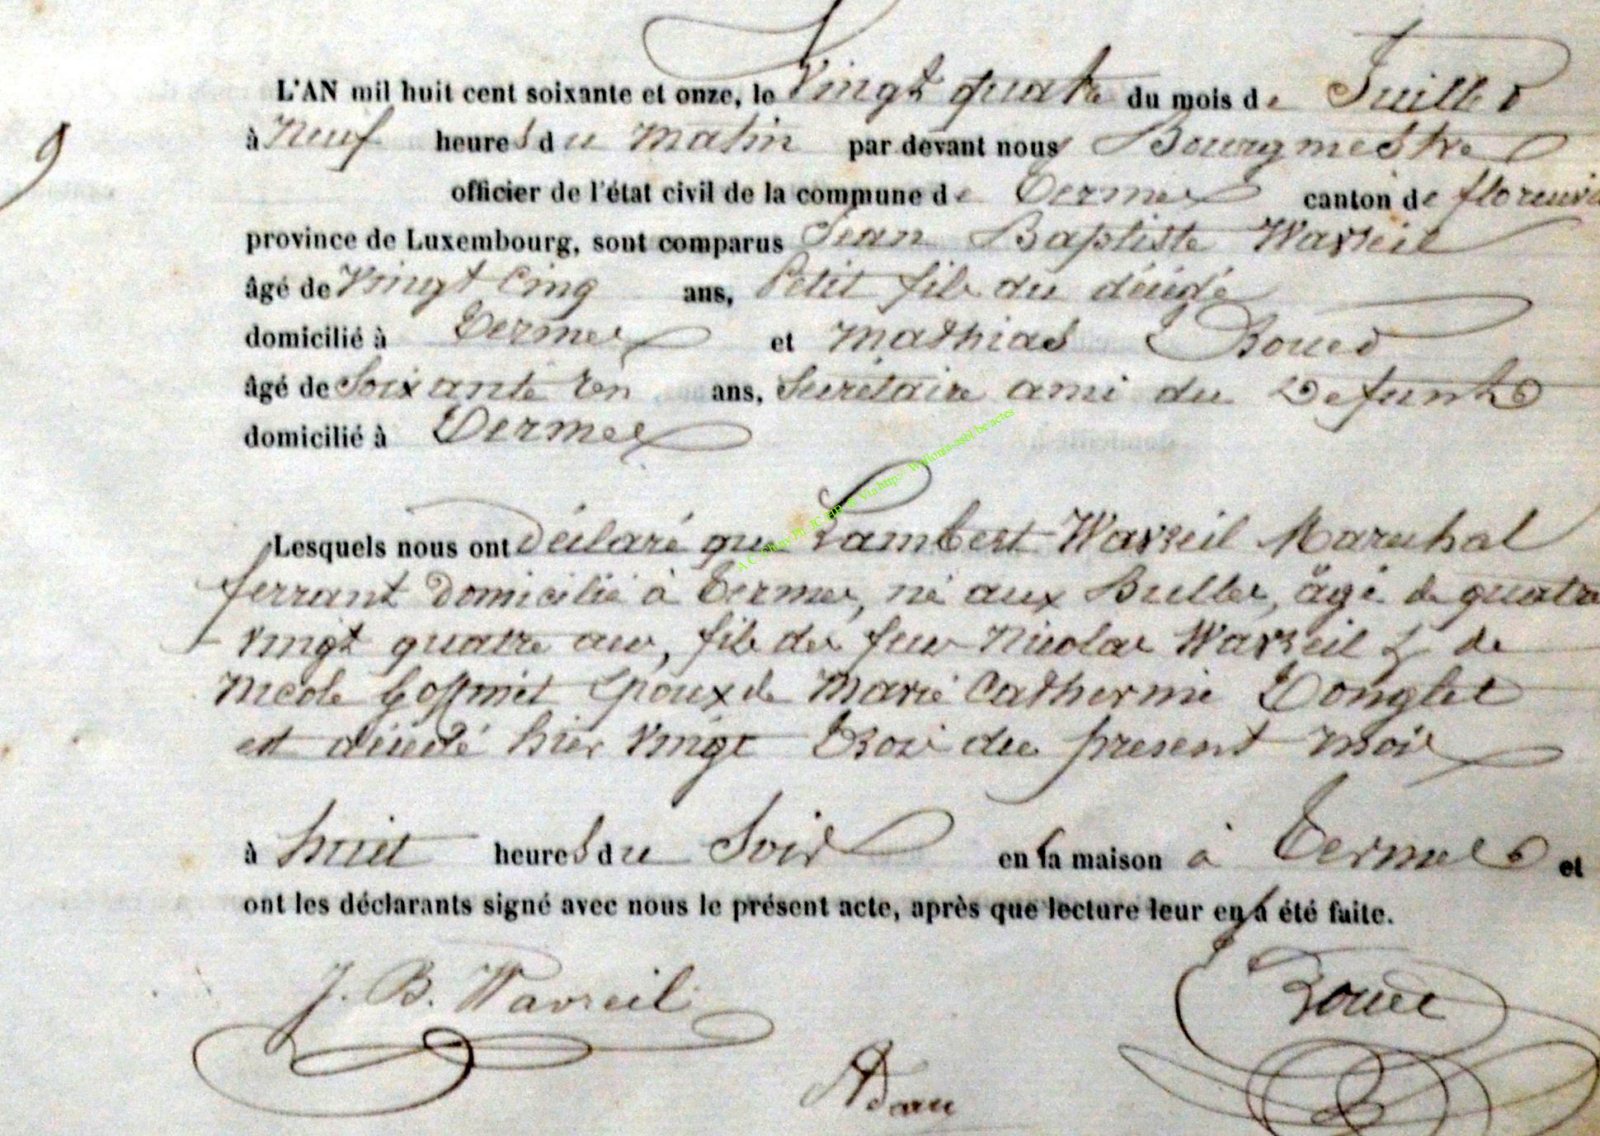 9
L'AN mil huit cent soixante et onze, le Vingt quatre du mois de Juillet
à Neuf heures du Matin par devant nous Bourgmestre
officier de l'état civil de la commune de Termes canton de florenvi
province de Luxembourg, sont comparus Jean Baptiste Wavreil
âgé de Vingt Cinq ans, Petit fils du décédé
domicilié à Termes et Mathias
âgé de Soixante ans, Secrétaire ami du Defunt
domicilié à Termes
Lesquels nous ont déclaré que Lambert Wavreil Marechal
ferrant domicilié à Termes, né aux Bulles, âgé de quatre
vingt quatre ans, fils de feu Nicolas Wavreil & de
Nicole époux de Marie Catherine Donglet
est décédé hier vingt trois du present mois
à huit heures du Soir en sa maison à Termes et
ont les déclarants signé avec nous le présent acte, après que lecture leur en a été faite.
J. B. Wavreil
Adam